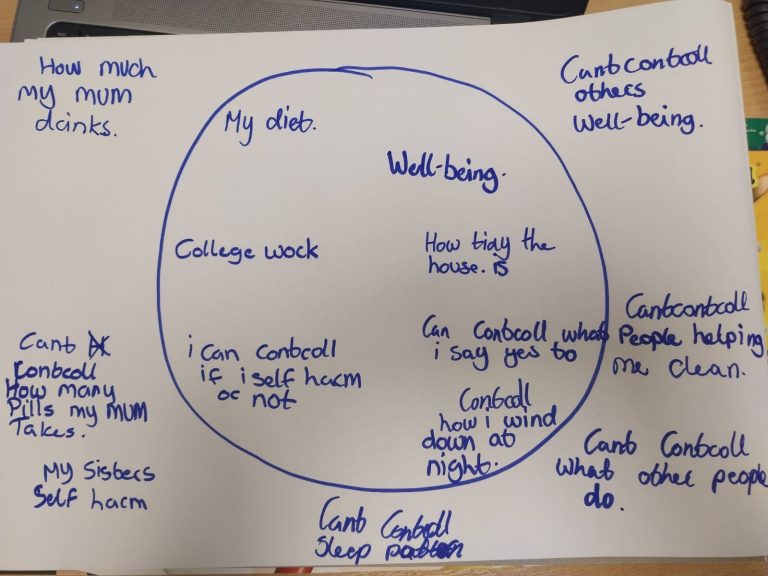 How much
my mum
drinks.
Cant control
others
Well-being.
My diet.
Well-being.
College work
How tidy the
house. is
i can control
if i self harm
or not
Can control what
i say yes to
Control
how i wind
down at
night.
Cant
control
How many
Pills my mum
Takes.
My sisters
Self harm
Cant control
People helping
me clean.
Cant control
what other people
do.
Cant control
Sleep pattern